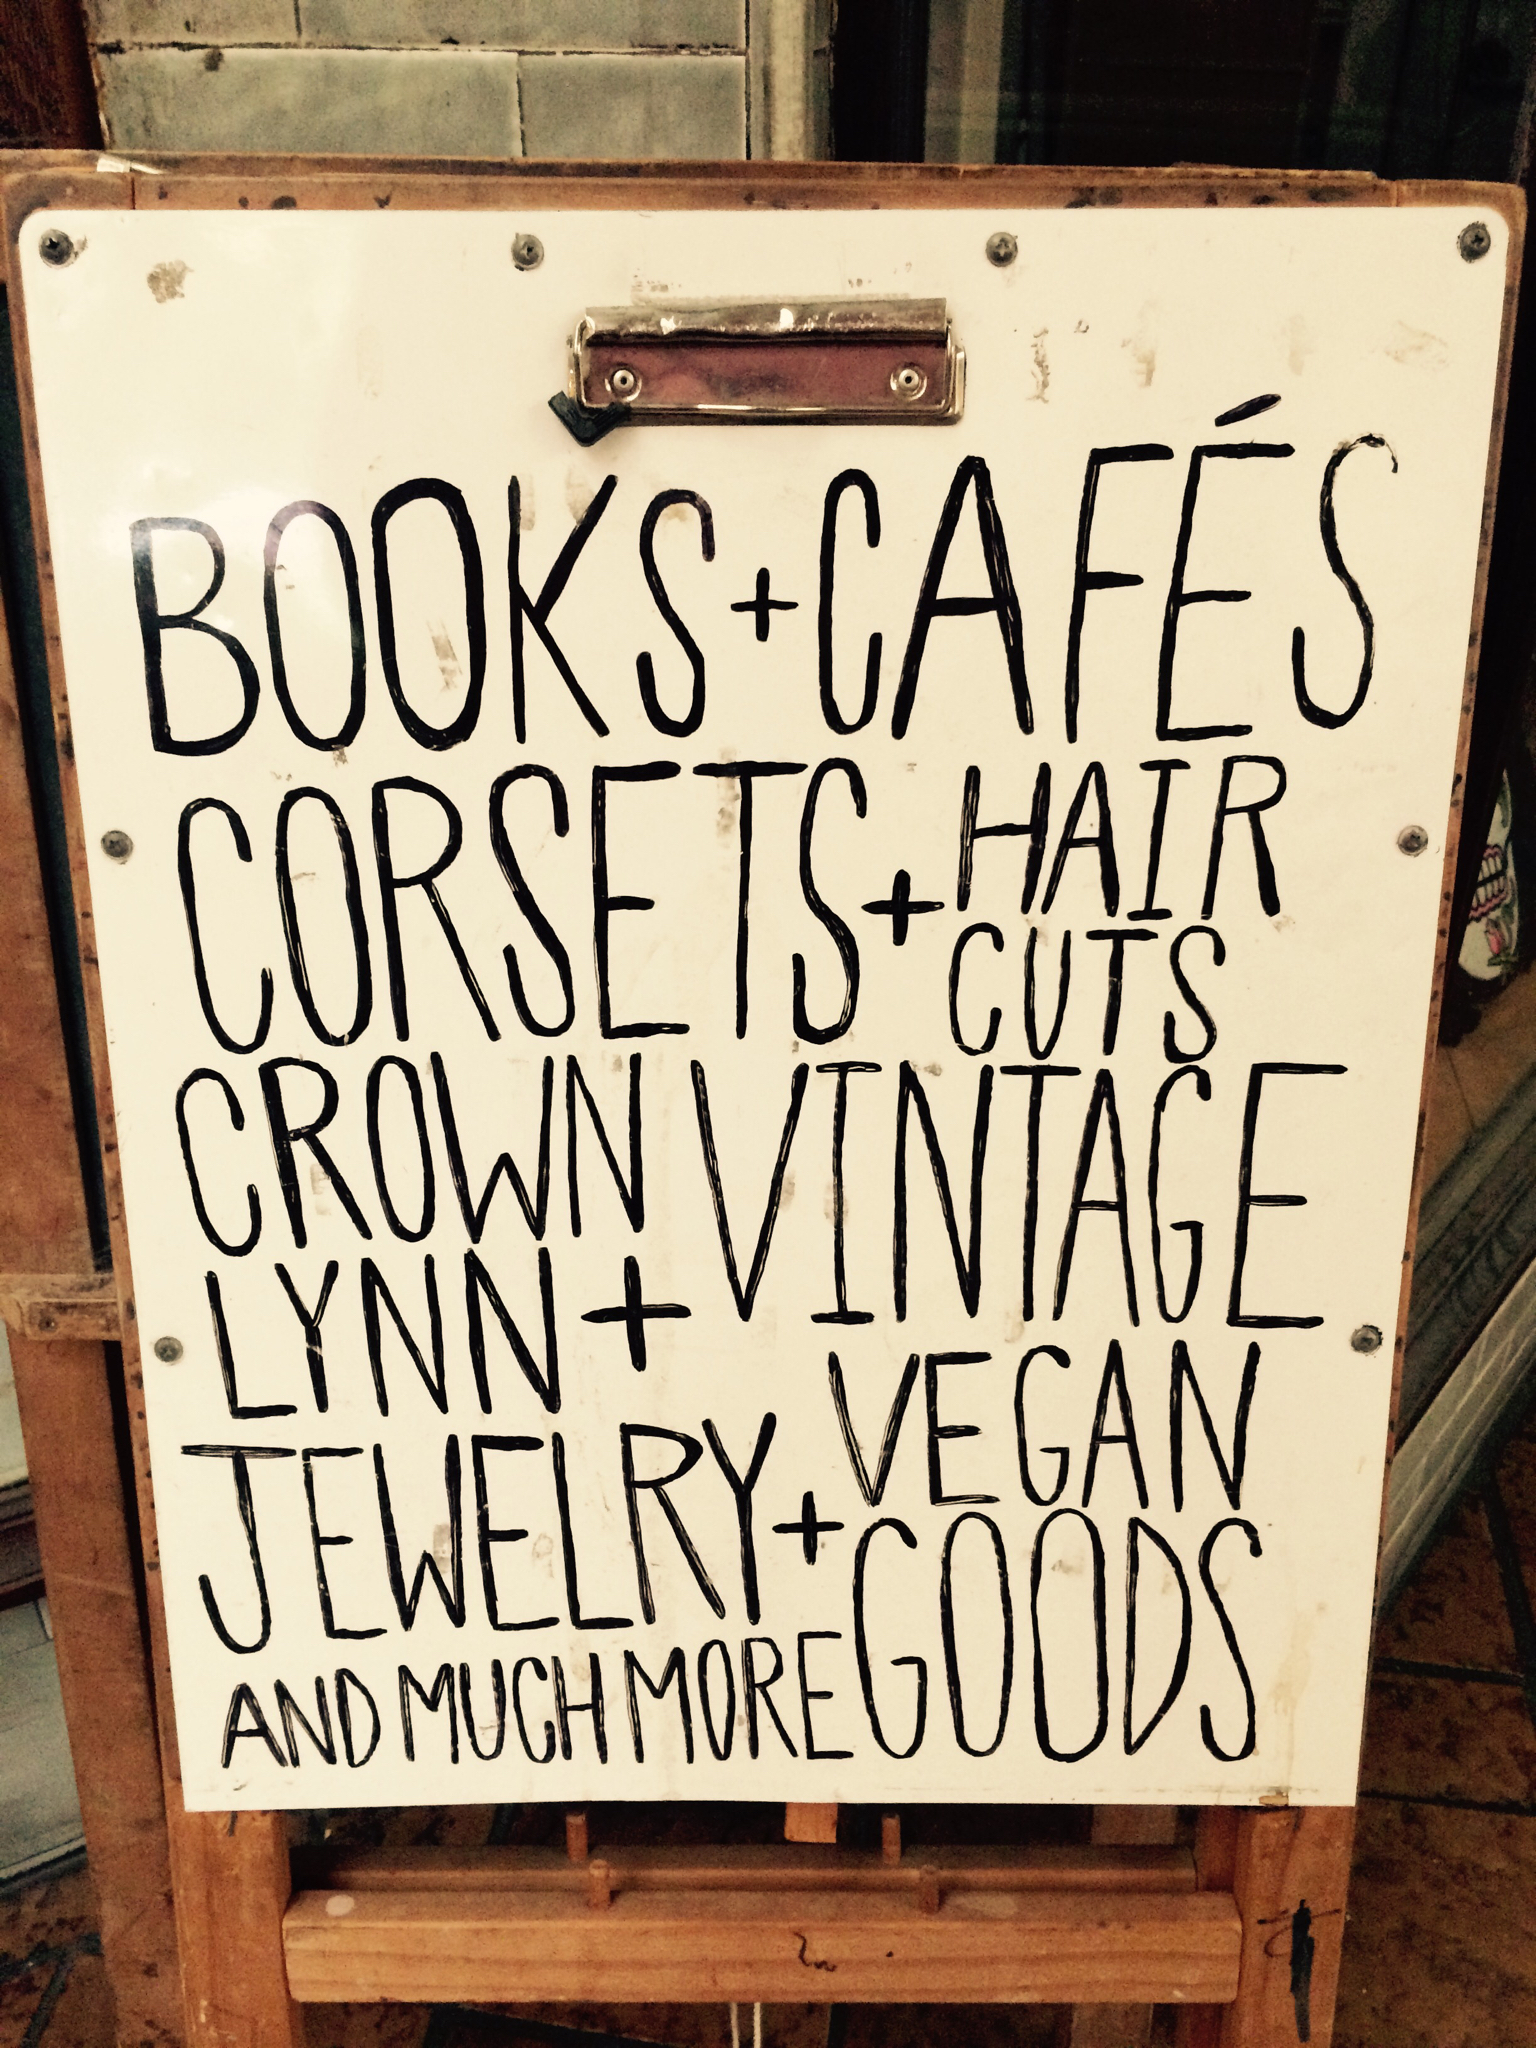 BOOKS + CAFÉS
CORSETS + HAIR
CUTS
CROWN
LYNN + VINTAGE
JEWELRY + VEGAN
GOODS
AND MUCH MORE